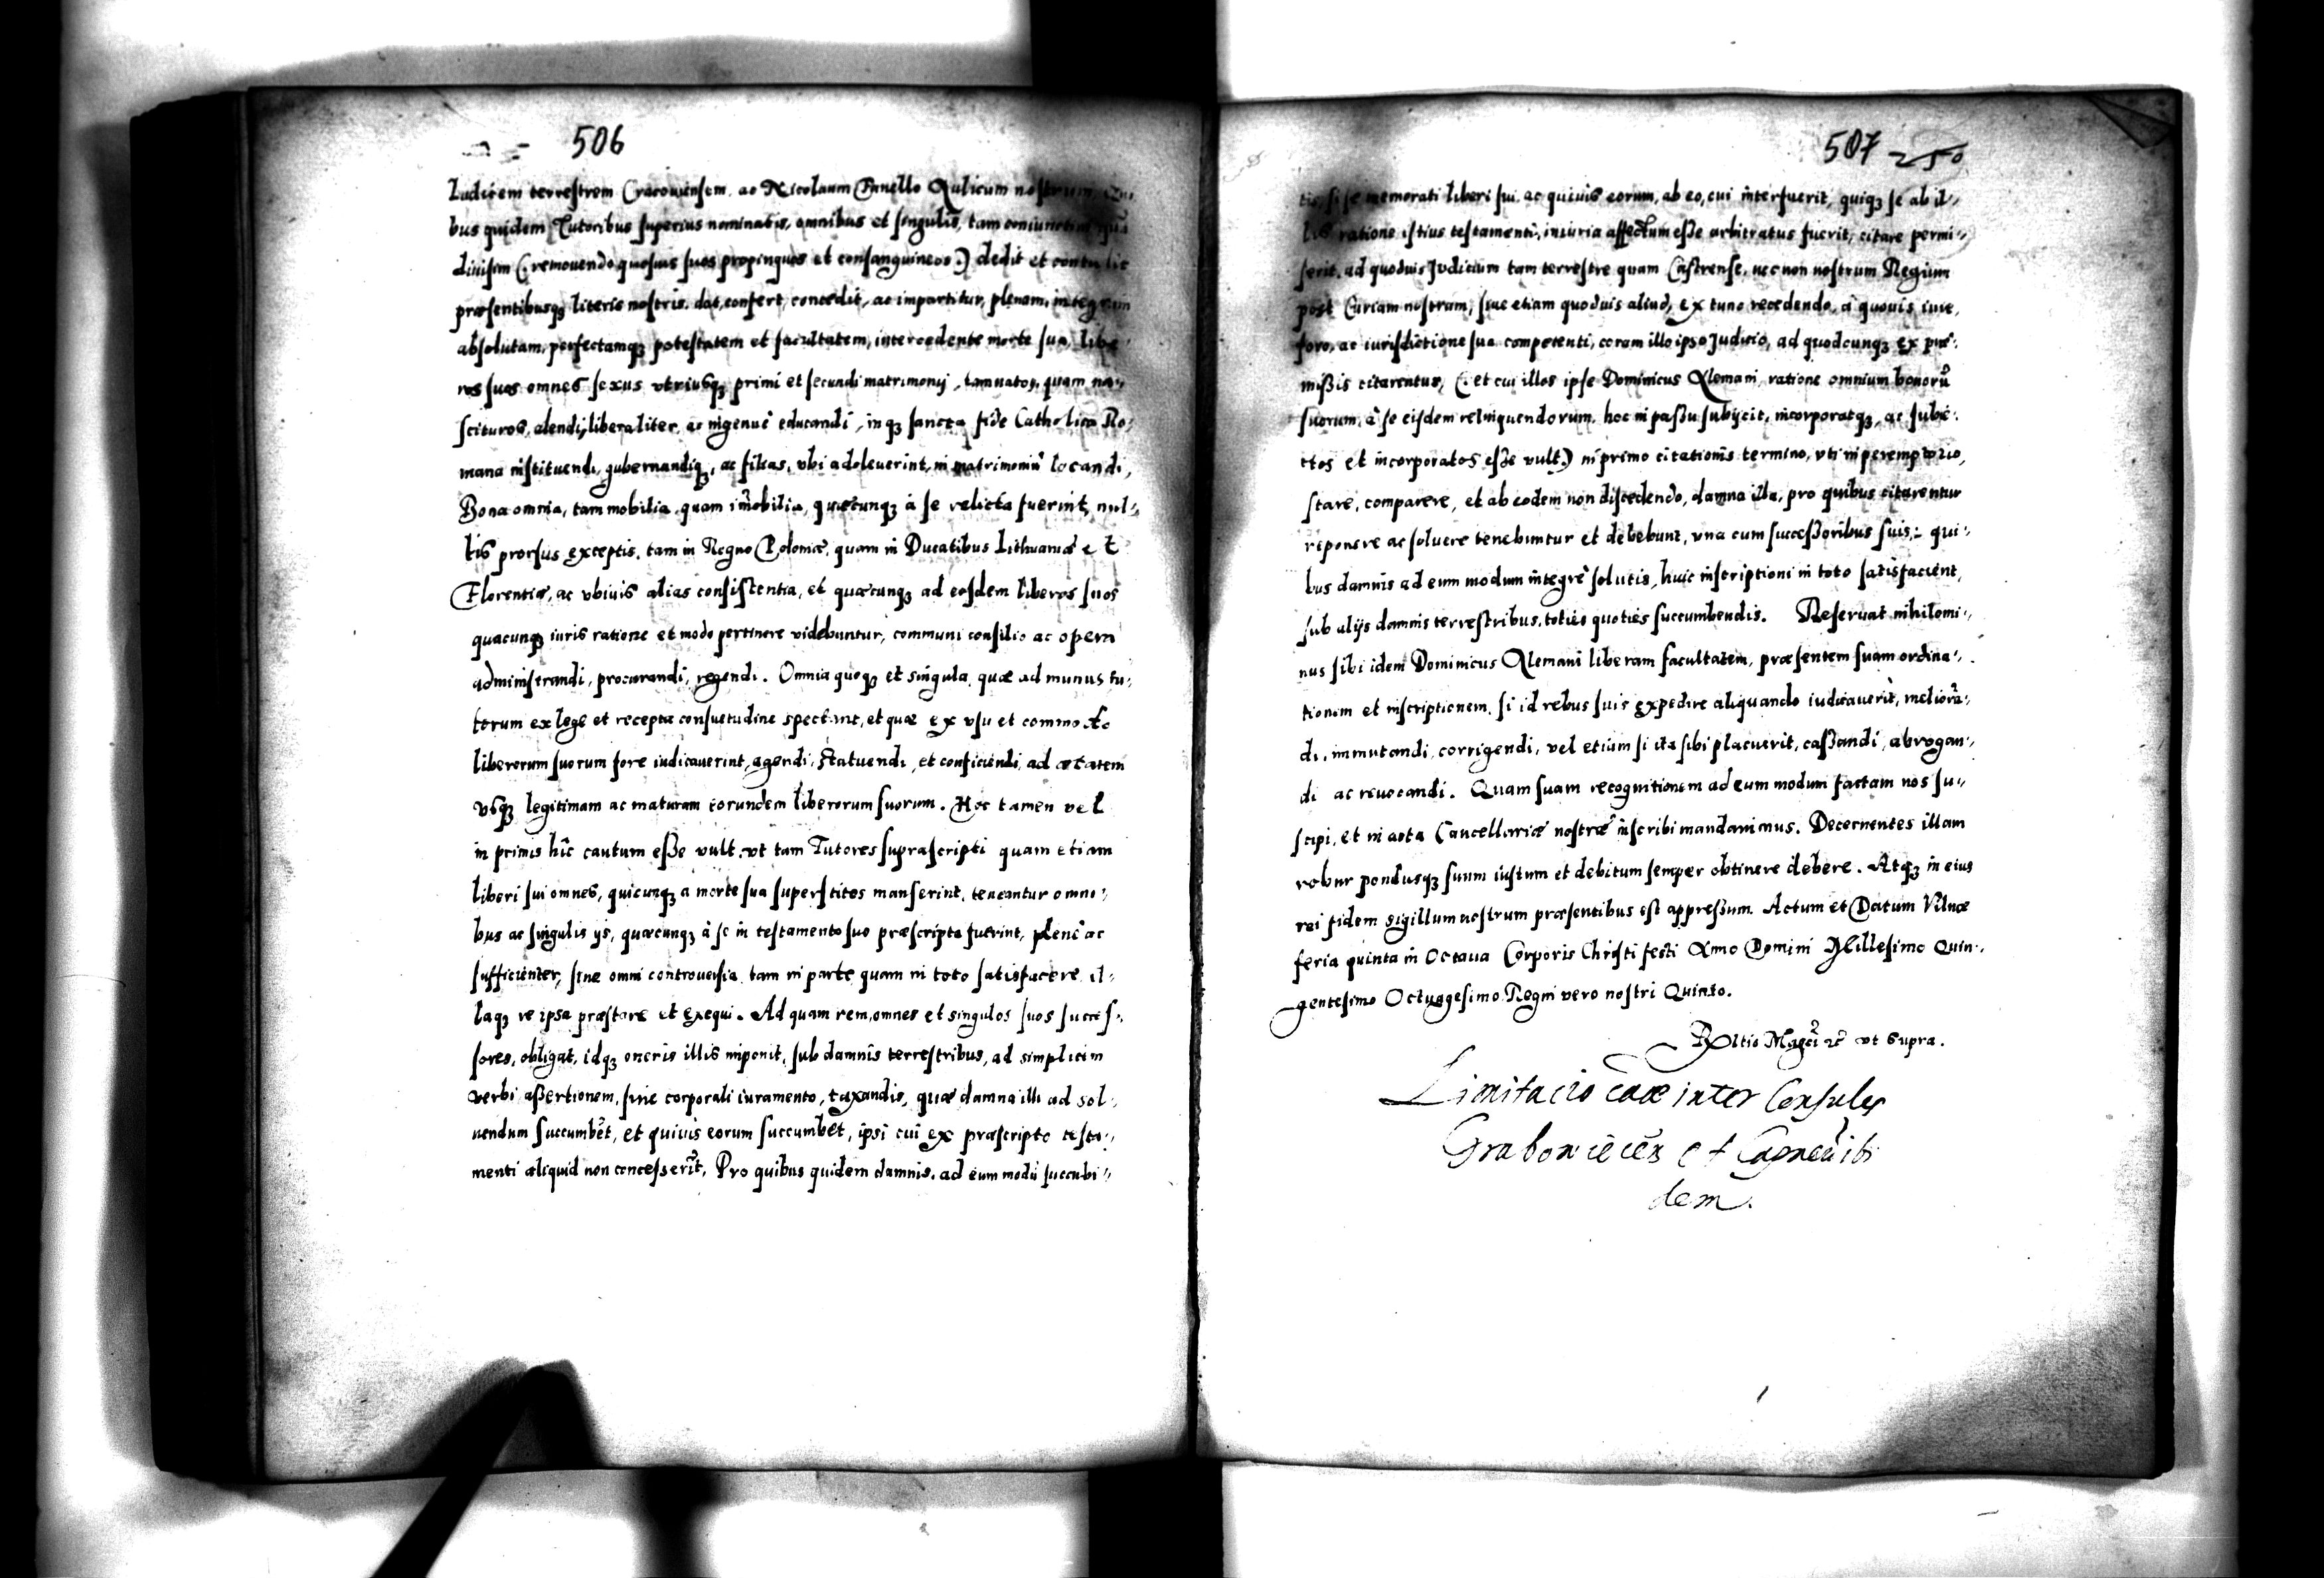 506
Iudicem terrestrem Cracouiensem, ac Nicolaum Fanello Aulicum nostrum, Qui,,
bus quidem Tutoribus superius nominatis, omnibus et singulis, tam coniunctim quā
diuisim (: remouendo quosuis suos propinquos et consanguineos :) dedit et contulit
præsentibusqꝫ literis nostris, dat, confert, concedit, ac impartitur, plenam, integram
absolutam, perfectamqꝫ potestatem et facultatem, intercedente morte sua, libe,,
ros suos omnes sexus vtriusqꝫ primi et secundi matrimonij, tam natos, quam na,,
scituros, alendi, liberaliter, ac ingenuè educandi, inqꝫ sancta fide Catholica Ro,,
mana instituendi, gubernandiqꝫ, ac filias, vbi adoleuerint, in matrimoniū locandi,
Bona omnia, tam mobilia quam im̄obilia, quæcunqꝫ à se relicta fuerint, nul,,
lis prorsus exceptis, tam in Regno Poloniæ, quam in Ducatibus Lithuaniæ et
Florentiæ, ac vbiuis alias consistentia, et quæcunqꝫ ad eosdem liberos suos
quacunqꝫ iuris ratione et modo pertinere videbuntur, communi consilio ac opera
administrandi, procurandi, regendi. Omnia quoqꝫ et singula, quæ ad munus tu,,
torum ex lege et recepta consuetudine spectant, et quæ ex vsu et commodo
liberorum suorum fore iudicauerint, agendi, statuendi, et conficiendi, ad ætatem
vsqꝫ legitimam ac maturam eorundem liberorum suorum. Hoc tamen vel
in primis hîc cautum esse vult, vt tam Tutores suprascripti quam etiam
liberi sui omnes, quicunqꝫ a morte sua superstites manserint, teneantur omni,,
bus ac singulis ijs, quæcunqꝫ à se in testamento suo præscripta fuerint, plenè ac
sufficienter, sine omni controuersia tam in parte quam in toto satisfacere, il,,
laqꝫ re ipsa præstare et exequi. Ad quam rem, omnes et singulos suos succes,,
sores, obligat, idqꝫ oneris illis imponit, sub damnis terrestribus, ad simplicem
verbi assertionem, sine corporali iuramento, taxandis, quæ damna illi ad sol,,
uendum succumbēt, et quiuis eorum succumbet, ipsi cui ex præscripto testa,,
menti aliquid non concesserīt, Pro quibus quidem damnis, ad eum modū succubi,,
507 250
tis, si se memorati liberi sui, ac quiuis eorum, ab eo, cui interfuerit, quiqꝫ se ab il,,
lis ratione istius testamenti, iniuria affectum esse arbitratus fuerit, citare permi,,
serit, ad quoduis Judicium tam terrestre quam Castrense, nec non nostrum Regium
post Curiam nostram, siue etiam quoduis aliud, ex tunc recedendo, à quouis iure,
foro, ac iurisdictione sua competenti, coram illo ipso Judicio, ad quodcunqꝫ ex præ,,
missis citarentur, (: et cui illos ipse Dominicus Alemani ratione omnium bonorū
suorum, à se eisdem relinquendorum, hoc in passu subijcit, incorporatqꝫ, ac subie,,
ctos et incorporatos esse vult :) in primo citationis termino, vti in peremptorio,
stare, comparere, et ab eodem non discedendo, damna illa, pro quibus citarentur
reponere ac soluere tenebuntur et debebunt, vna cum successoribus suis: qui,,
bus damnis ad eum modum integrè solutis, huic inscriptioni in toto satisfacient,
sub alijs damnis terrestribus, toties quoties succumbendis. Reseruat nihilomi,,
nus sibi idem Dominicus Alemani liberam facultatem, præsentem suam ordina,,
tionem et inscriptionem, si id rebus suis expedire aliquando iudicauerit, meliorā,,
di, immutandi, corrigendi, vel etiam si ita sibi placuerit, cassandi, abrogan,,
di ac reuocandi. Quam suam recognitionem ad eum modum factam nos su,,
scipi, et in acta Cancellariæ nostræ inscribi mandauimus. Decernentes illam
robur pondusqꝫ suum iustum et debitum semper obtinere debere. Atqꝫ in eius
rei fidem sigillum nostrum præsentibus est appressum. Actum et Datum Vilnæ
feria quinta in Octaua Corporis Christi festi Anno Domini Millesimo Quin,,
gentesimo Octuagesimo Regni vero nostri Quinto.
Rltio Mgci ꝛc̄ vt supra.
Limitacio cāæ inter Consules
Graboviecēn et ibi
dem.